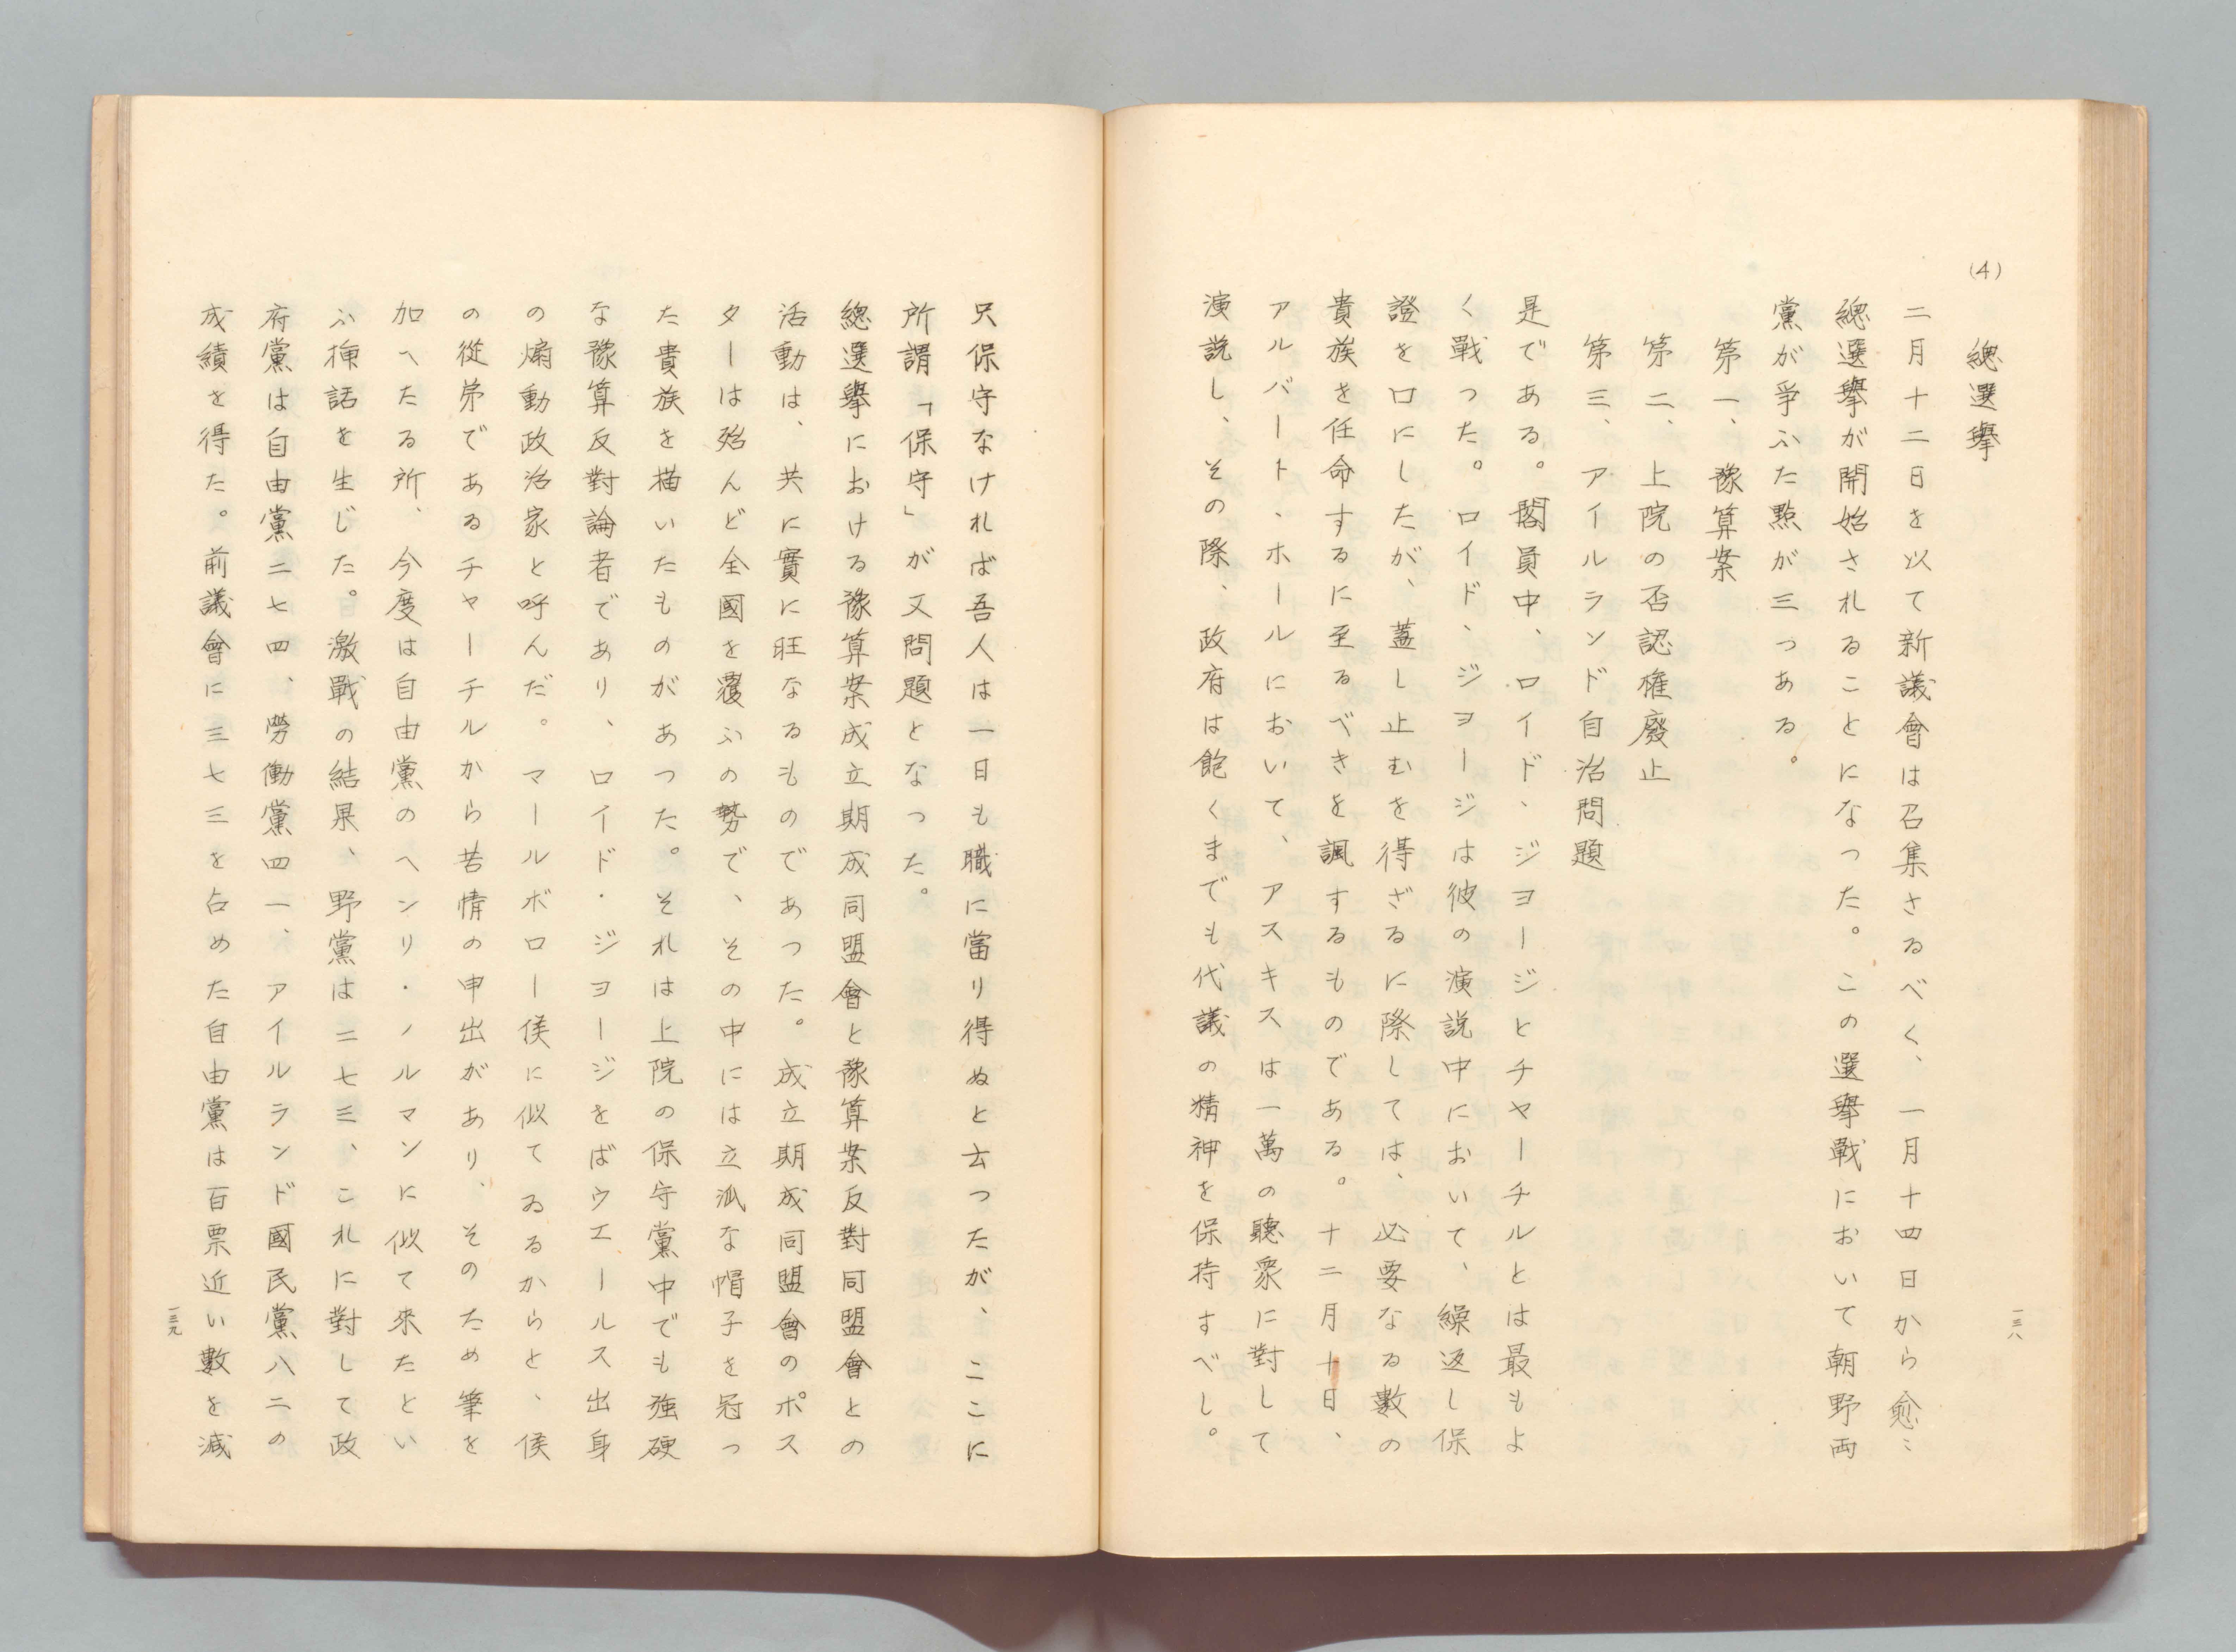 (4) 總選擧
二月十二日を以て新議會は召集さるべく、一月十四日から愈〻
總選擧が開始されることになった。この選擧戰において朝野両
黨が爭ふた點が三つある。
第一、豫算案
第二、上院の否認権廢止
第三、アイルランド自治問題
是である。閣員中、ロイド、ジヨージとチャーチルとは最もよ
く戰った。ロイド、ジヨージは彼の演説中において、繰返し保
證を口にしたが、蓋し止むを得ざるに際しては、必要なる數の
貴族を任命するに至るべきを諷するものである。十二月十日、
アルバート、ホールにおいて、アスキスは一萬の聽衆に對して
演説し、その際、政府は飽くまでも代議の精神を保持すべし。
一三八
只保守なければ吾人は一日も職に當り得ぬと云ったが、ここに
所謂「保守」が又問題となった。
總選擧における豫算案成立期成同盟會と豫算案反對同盟會との
活動は、共に實に旺なるものであった。成立期成同盟會のポス
ターは殆んど全國を覆ふの勢で、その中には立派な帽子を冠っ
た貴族を描いたものがあった。それは上院の保守黨中でも强硬
な豫算反對論者であり、ロイド・ジヨージをばウエールス出身
の煽動政治家と呼んだ。マールボロー侯に似てゐるからと、侯
の從弟であるチャーチルから苦情の申出があり、そのため筆を
加へたる所、今度は自由黨のヘンリ・ノルマンに似て來たとい
ふ挿話を生じた。激戰の結果、野黨は二七三、これに對して政
府黨は自由黨二七四、勞働黨四一、アイルランド國民黨八二の
成績を得た。前議會に三七三を占めた自由黨は百票近い數を減
一三九